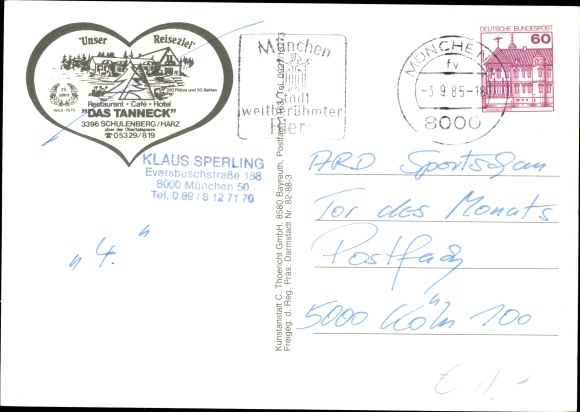 "Unser Reiseziel"
25 Jahre
200 Plätze und 50 Betten
Restaurant • Café • Hotel
"DAS TANNECK"
3396 SCHULENBERG/HARZ
über der Okertalsperre
☎ 05329/819
KLAUS SPERLING
Eversbuschstraße 188
8000 München 50
Tel. 0 89 / 8 12 71 70
"4."
München
Stadt
weltberühmter
Bier
MÜNCHEN
fv
-3.9.85-18
8000
DEUTSCHE BUNDESPOST
60
Kunstanstalt C. Thoericht GmbH, 8580 Bayreuth, Postfach
Freigeg. d. Reg. Präs. Darmstadt Nr. 82-88-3
ARD Sportschau
Tor des Monats
Postfach
5000 Köln 100
€ 1,-